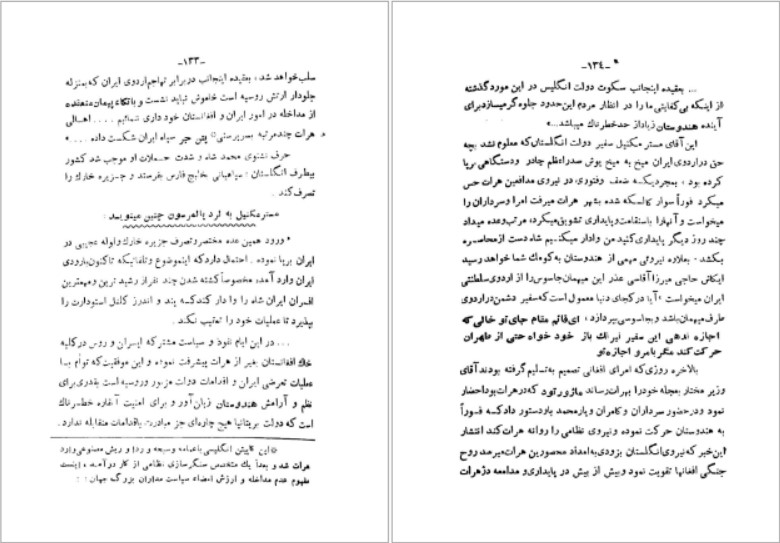 -۱۳۳-
سلب خواهد شد؛ بعقیده اینجانب در برابر تهاجم اردوی ایران که بمنزله
جلودار ارتش روسیه است خاموش نباید نشست و باتکاء پیمان منعقده
از مداخله در امور ایران و افغانستان خود داری نمائیم .... اهالی
هرات چند مرتبه بسرپرستی* پتن جر سپاه ایران شکست داده ....»
حرف نشنوی محمد شاه و شدت حملات او موجب شد کشور
بیطرف انگلستان؛ سپاهیانی خلیج فارس بفرستد و جزیره خارك را
تصرف کند.
مسترمکنیل به لرد پالمرسون چنین مینویسد:
«ورود همین عده مختصر و تصرف جزیره خارك ولوله عجیبی در
ایران برپا نموده. احتمال دارد که اینموضوع و تلفاتیکه تاکنون باردوی
ایران وارد آمده، مخصوصاً کشته شدن چند نفر از رشید ترین و مهمترین
افسران ایران شاه را وا دار کند که پند و اندرز کلنل استودارت را
بپذیرد تا عملیات خود را تعقیب نکند.
.... در این ایام نفوذ و سیاست مشترکه ایران و روس در کلیه
خاك افغانستان بغیر از هرات پیشرفت نموده و این موفقیت که توأم بسا
عملیات تعرضی ایران و اقدامات دولت مزبور و روسیه است بقدری برای
نظم و آرامش هندوستان زیان آور و برای امنیت آنقاره خطرناك
است که دولت بریتانیا هیچ چاره‌ای جز مبادرت باقدامات متقابله ندارد.
*این کاپیتن انگلیسی با عمامه وسیعه و ردا و ریش مصنوعی وارد
هرات شد و بعداً یك متخصص سنگر سازی نظامی از کار در آمد، اینست
مفهوم عدم مداخله و ارزش امضاء سیاست مداران بزرگ جهان!!
-۱۳٤-
... بعقیده اینجانب سکوت دولت انگلیس در این مورد گذشته
از اینکه بی‌کفایتی ما را در انظار مردم این حدود جلوه گر میسازد برای
آینده هندوستان زیاد از حد خطرناك میباشد...»
این آقای مستر مکنیل سفیر دولت انگلستان که معلوم نشد بچه
حق در اردوی ایران میخ به میخ پوش صدراعظم چادر و دستگاهی برپا
کرده بود، بمجردیکه ضعف و فتوری، در نیروی مدافعین هرات حس
میکرد فوراً سوار کالسکه شده بشهر هرات میرفت امرا و سرداران را
میخواست و آنها را باستقامت و پایداری تشویق میکرد، مرتب وعده میداد
چند روز دیگر پایداری کنید من وادار میکنم شاه دست از محاصره
بکشد - بعلاوه نیروئی مهمی از هندوستان به کومك شما خواهد رسید
ایکاش حاجی میرزا آقاسی عذر این میهمان جاسوس را از اردوی سلطنتی
ایران میخواست، آیا در کجای دنیا معمول است که سفیر دشمن در اردوی
طرف میهمان باشد و بجاسوسی بپردازد، ای قائم مقام جای تو خالی که
اجازه ندهی این سفیر نیرنك باز خود خواه حتی از طهران
حرکت کند مگر بامر و اجازه تو
بالاخره روزی که امرای افغانی تصمیم به تسلیم گرفته بودند آقای
وزیر مختار بعجله خود را بهرات رساند ماژور تود که در هرات بود احضار
نمود و در حضور سرداران و کامران و یار محمد باو دستور داد که فوراً
به هندوستان حرکت نموده و نیروی نظامی را روانه هرات کند انتشار
این خبر که نیروی انگلستان بزودی به امداد محصورین هرات میرسد روح
جنگی افغانها تقویت نمود و بیش از بیش در پایداری و مدافعه دژ هرات